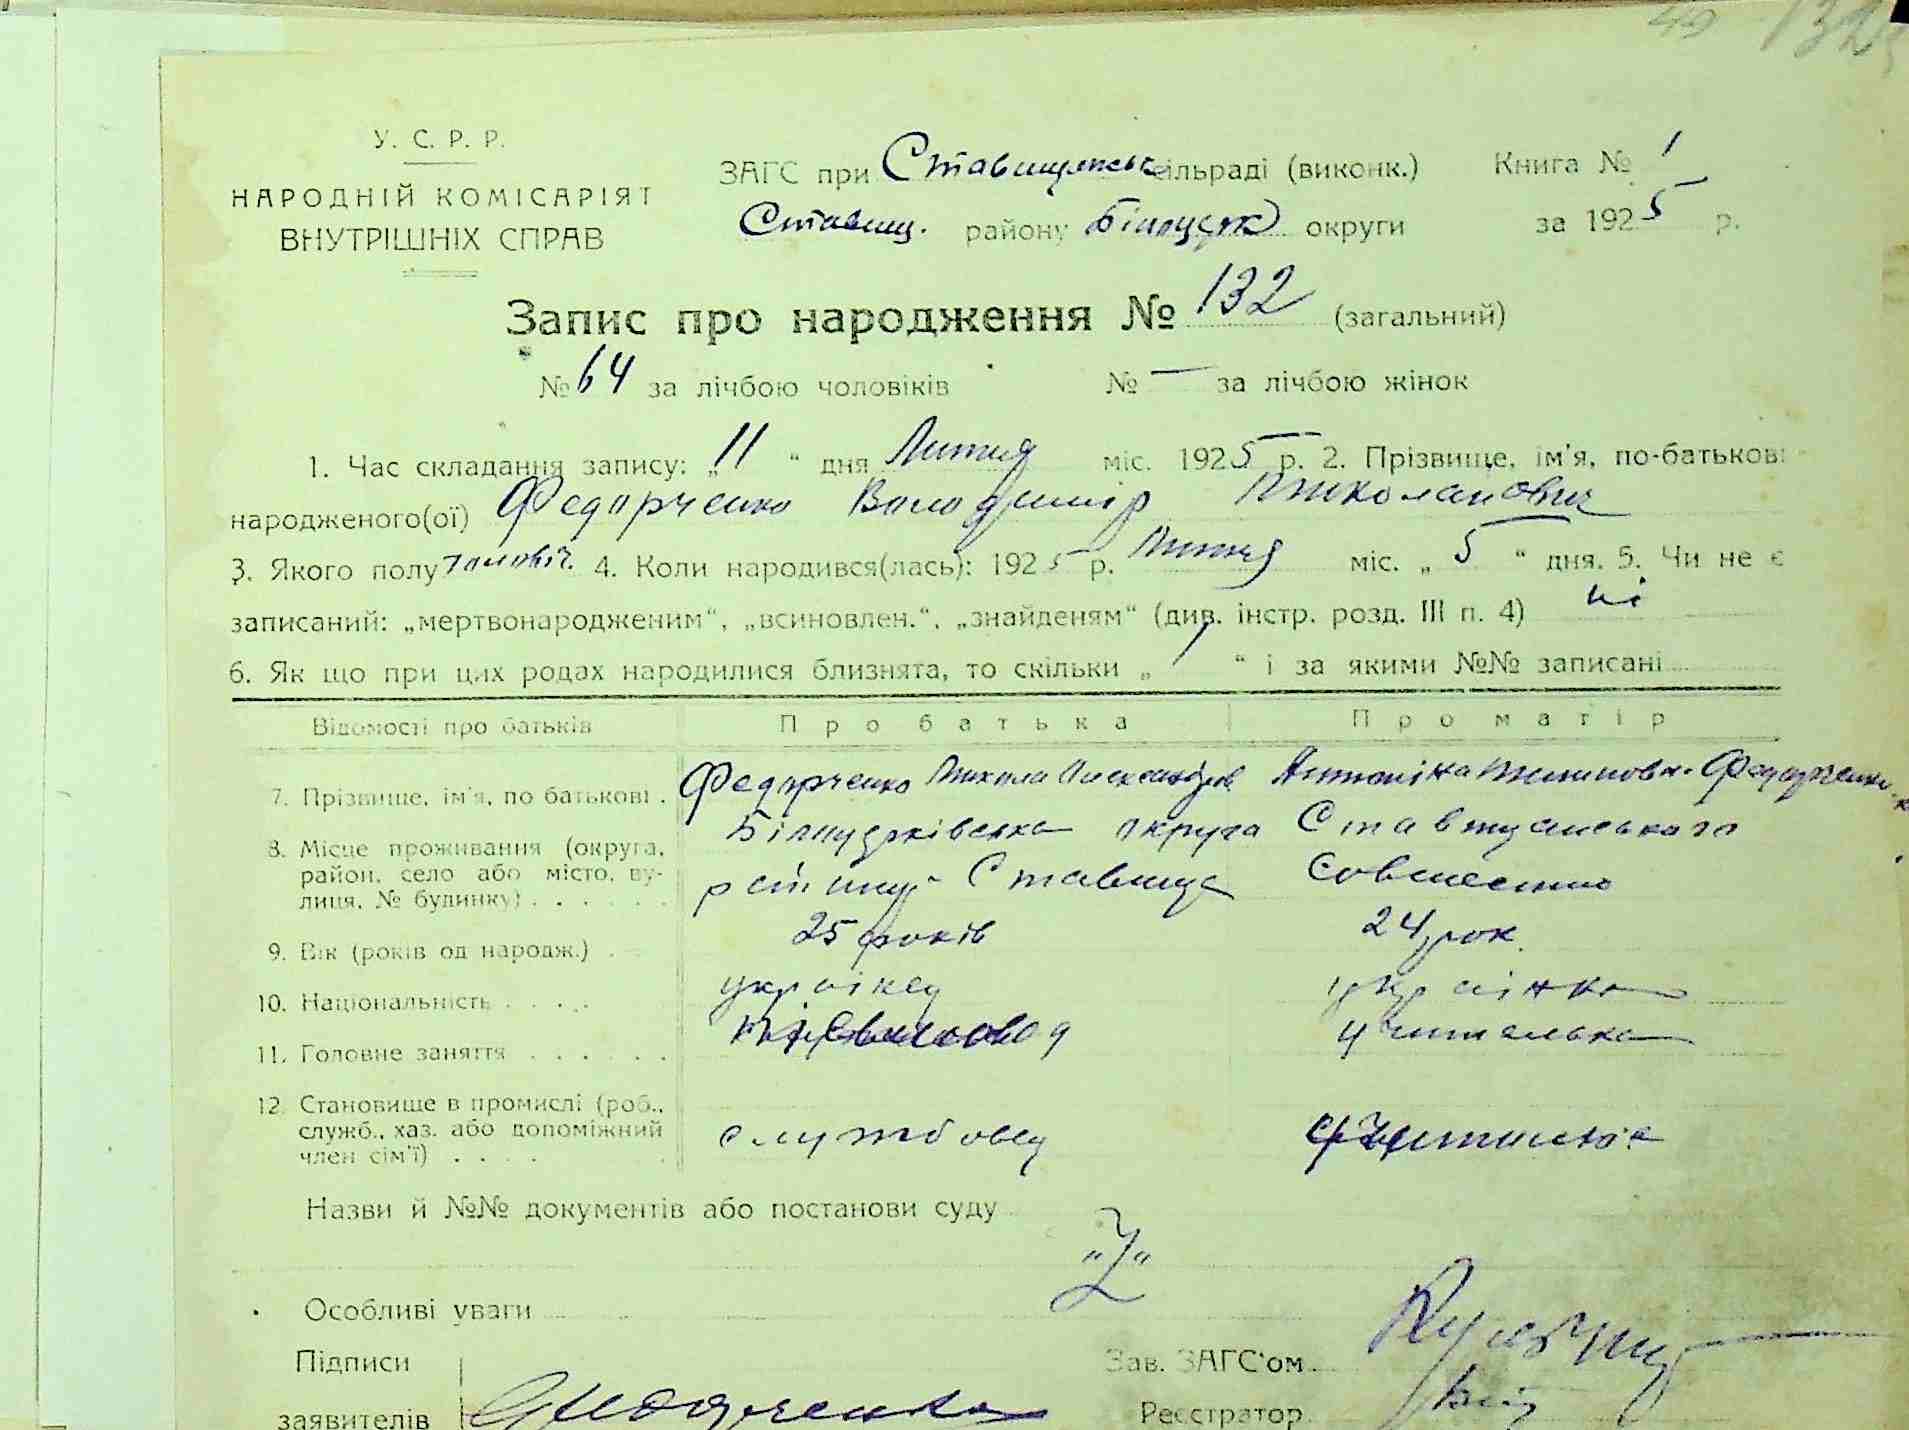 49 132
У. С. Р. Р.
НАРОДНІЙ КОМІСАРІЯТ
ВНУТРІШНІХ СПРАВ
ЗАГС при Ставищянськ сільраді (виконк.) Книга № 1
Ставищ. району Білоцерк округи за 1925 р.
Запис про народження № 132 (загальний)
№ 64 за лічбою чоловіків № — за лічбою жінок
1. Час складання запису: „11“ дня Липня міс. 1925 р. 2. Прізвище, ім'я, по-батькові
народженого(ої) Федорченко Володимір Миколайович
3. Якого полу чоловіч. 4. Коли народився(лась): 1925 р. Липня міс. „5“ дня. 5. Чи не є
записаний: „мертвонародженим“, „всиновлен.“, „знайденям“ (див. інстр. розд. III п. 4) ні
6. Як що при цих родах народилися близнята, то скільки „ “ і за якими №№ записані
Відомості про батьків Про батька Про матір
7. Прізвище, ім'я, по батькові . Федорченко Микола Олександров Антоніна Федорченко
8. Місце проживання (округа, район, село або місто, вулиця, № будинку) . . . . . . Білоцерківська округа Ставищанського
Ставища
9. Вік (років од народж.) . . 25 років 24 рок.
10. Національність . . . . українец українка
11. Головне заняття . . . . . . учителька
12. Становище в промислі (роб., служб., хаз. або допоміжний член сім'ї) . . . . службовец
Назви й №№ документів або постанови суду
„Z“
Особливі уваги
Підписи Зав. ЗАГС'ом
заявителів Федорченко Реєстратор